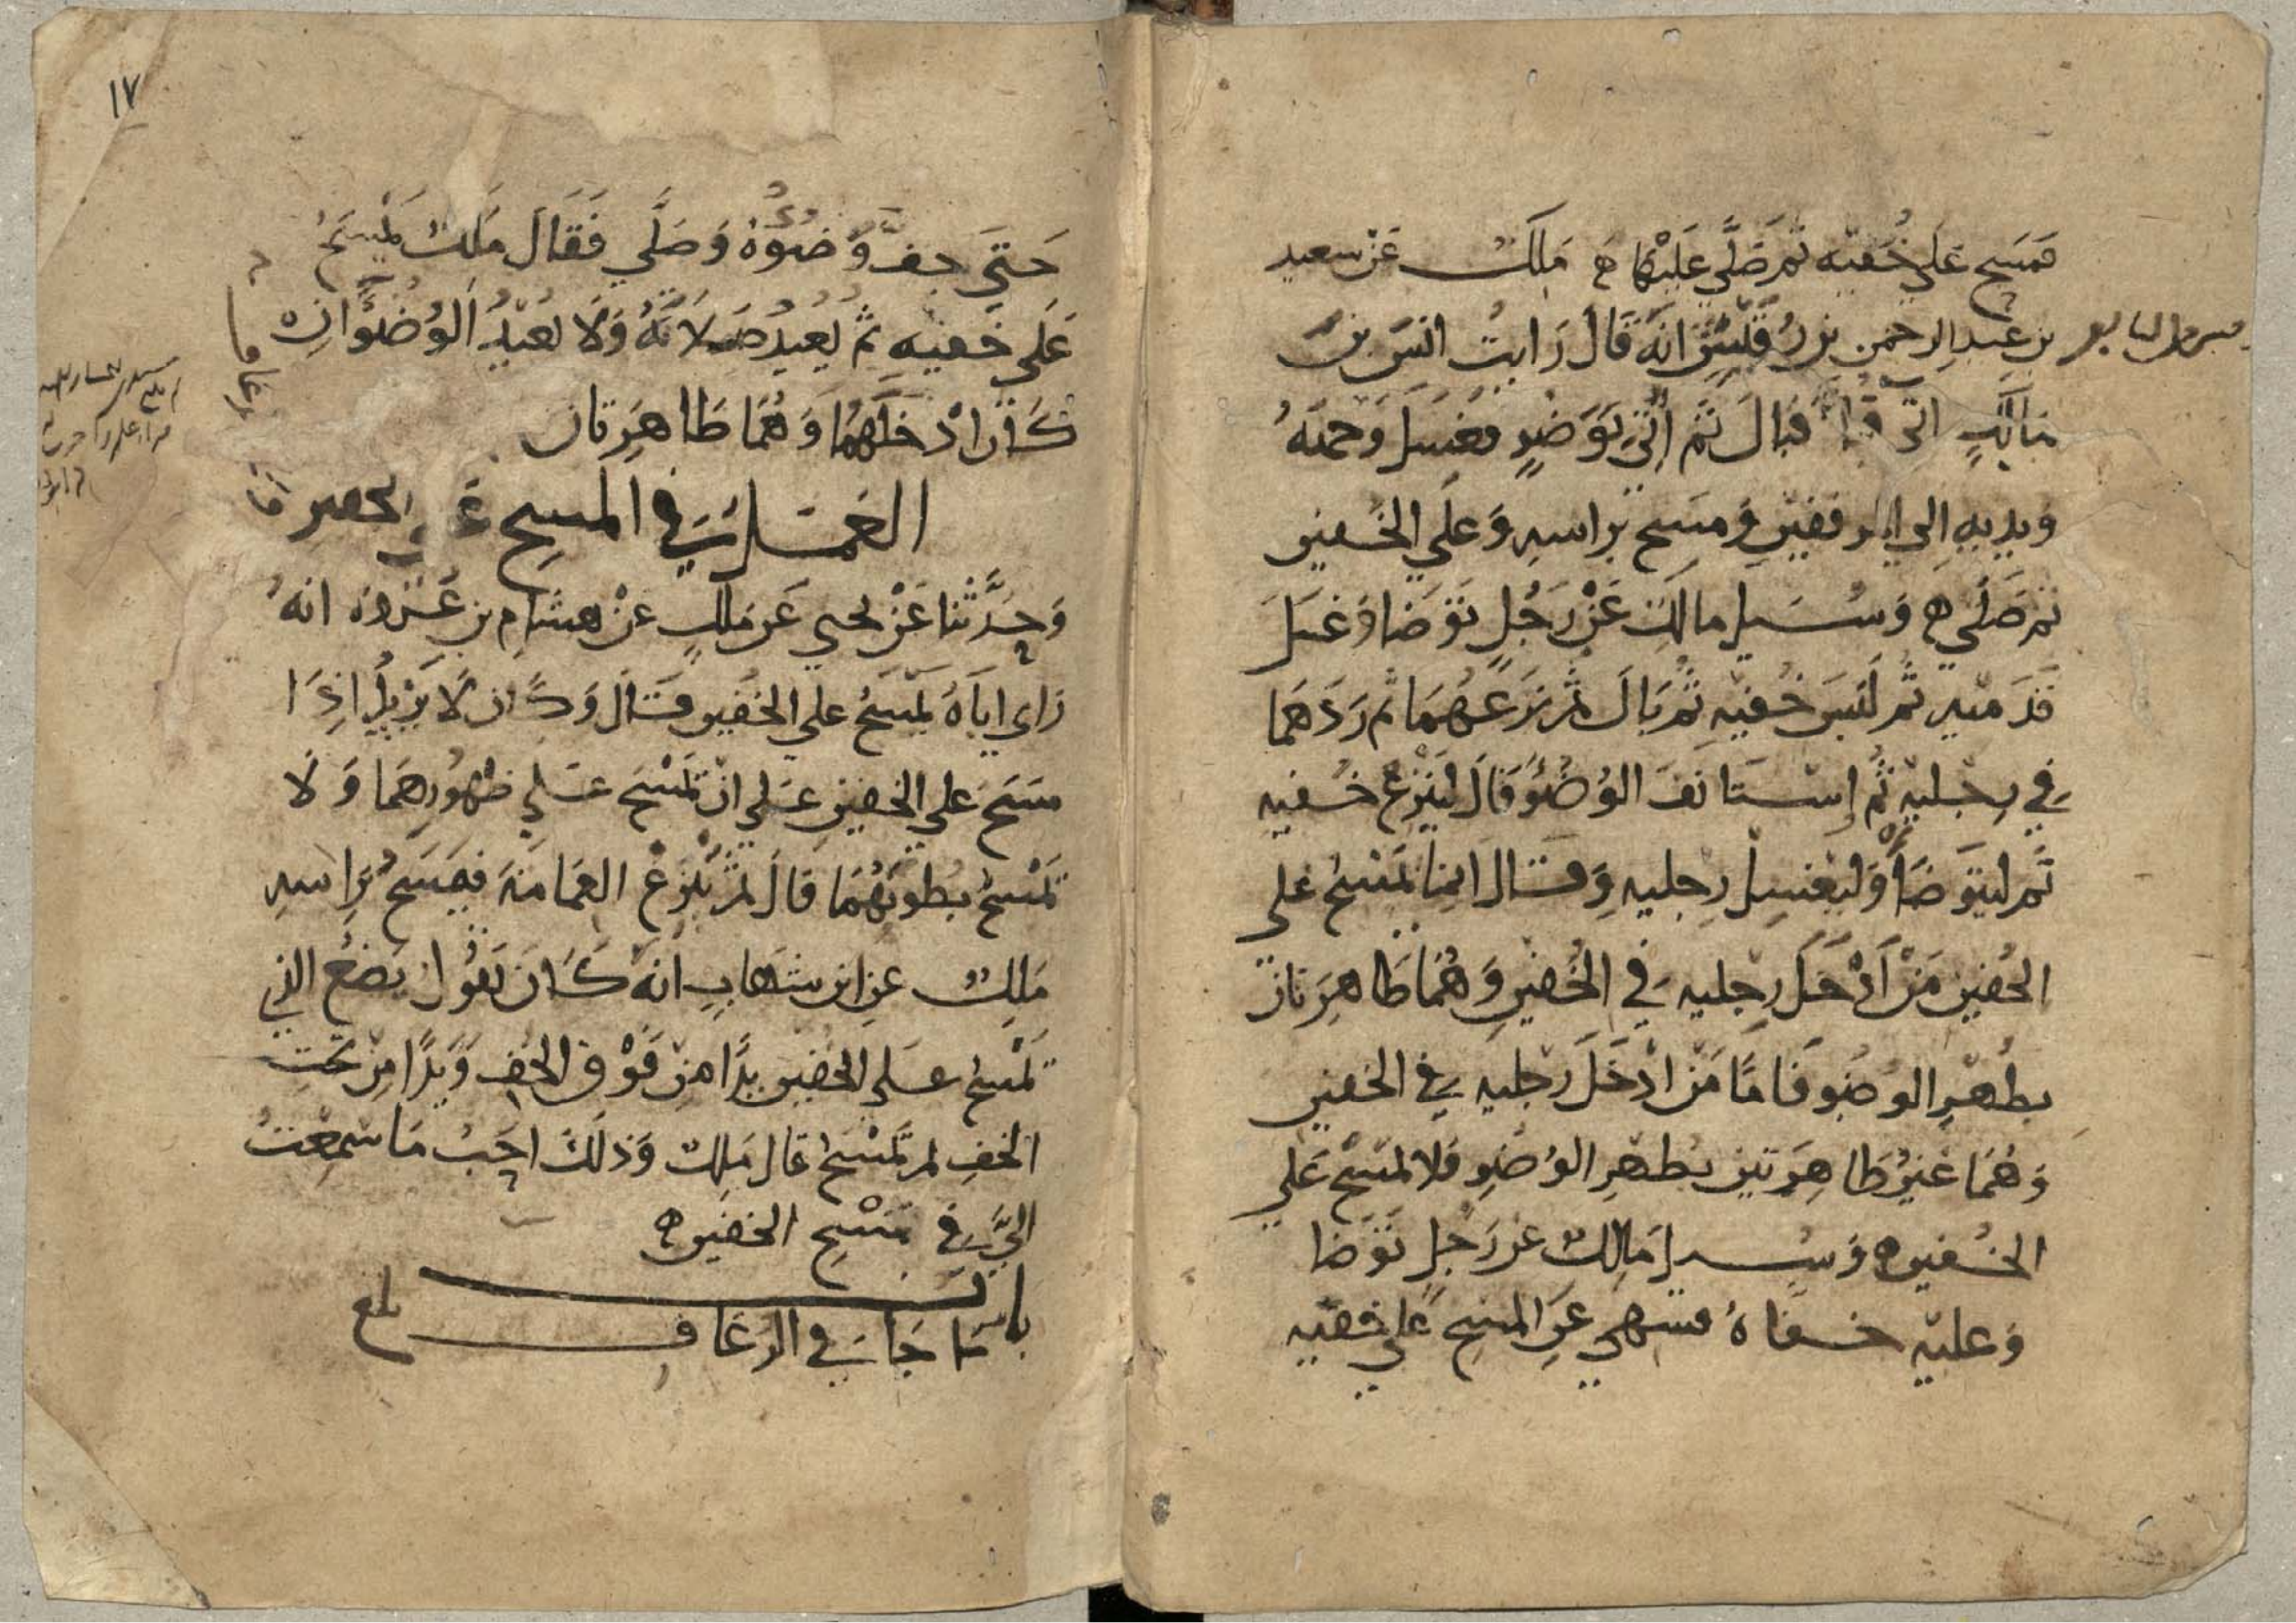 فمسح علي خفيه ثم صلي عليها ه ملك عن سعيد
بن عبد الرحمن بن رقيش انه قال رايت انس بن
مالك اتي قبا فبال ثم اتي بوضو فغسل وجهه
ويديه الي المرفقين ومسح براسه وعلي الخفين
ثم صلي ه وسيل مالك عن رجل توضا وغسل
قدميه ثم لبس خفيه ثم بال ثم نزعهما ثم ردهما
في رجليه ثم إستانف الوضؤ قال لينزع خفيه
ثم ليتوضأ وليغسل رجليه وقال انما يمسح علي
الخفين من أدخل رجليه في الخفين وهما طاهرتان
بطهر الوضو فاما من ادخل رجليه في الخفين
وهما غير طاهرتين بطهر الوضو فلا يمسح علي
الخفين ه وسيل مالك عن رجل توضا
وعليه خفاه فسهي عن المسح علي خفيه
١٧
حتي جف وضوءه وصلي فقال ملك يمسح
علي خفيه ثم يعيد صلاته ولا يعيد الوضؤ ان
كان ادخلهما وهما طاهرتان
العمل في المسح علي الخفين
وحدثنا عن يحيي عن ملك عن هشام بن عروه انه
راي اباه يمسح علي الخفين قال وكان لا يزيد اذا
مسح علي الخفين علي ان يمسح علي ظهورهما ولا
يمسح بطونهما قال ثم ينزع العمامة فيمسح براسه
ملك عن ابن شهاب انه كان يقول يضع الذي
يمسح علي الخفين يدا من فوق الخف ويدا من تحت
الخف ثم يمسح قال ملك وذلك احب ما سمعت
الي في مسح الخفين ه
باب
ما جا في الرعاف بلغ